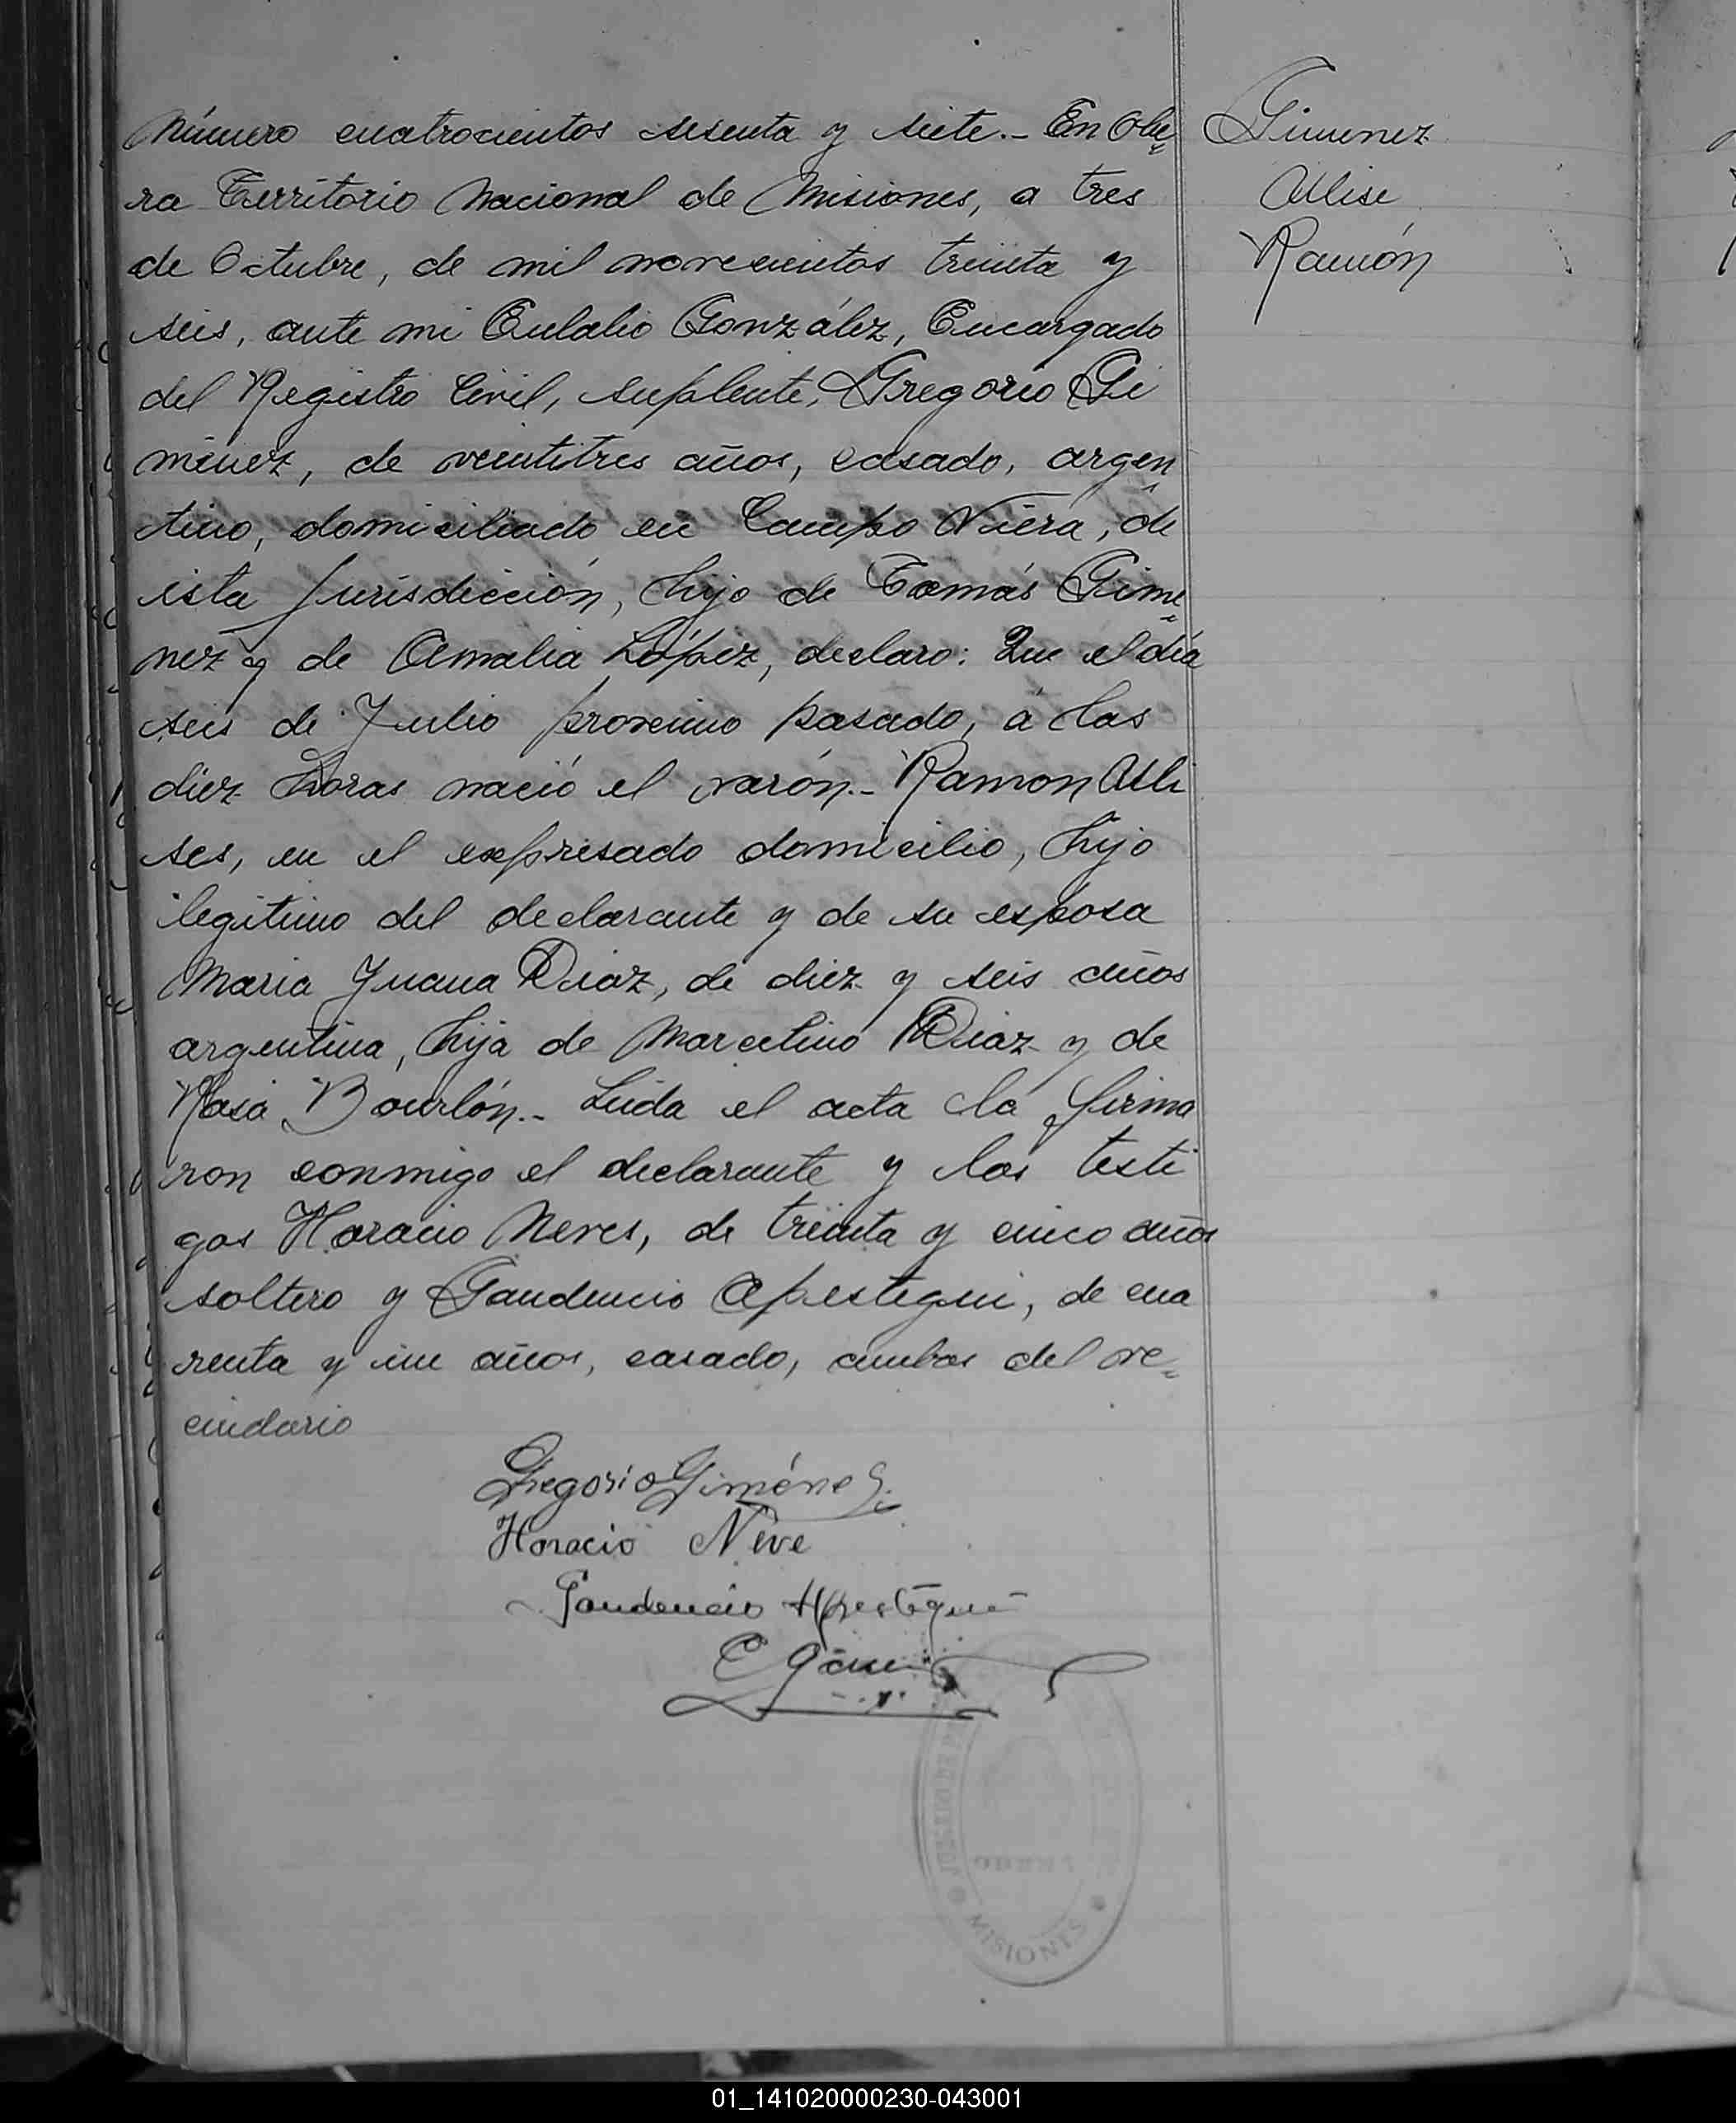 Número cuatrocientos sesenta y siete.- En Obe=
ra Territorio Nacional de Misiones, a tres
de Octubre, de mil novecientos treinta y
seis, ante mi Eulalio González, Encargado
del Registro Civil, suplente, Gregorio Gi
menez, de veintitres años, casado, argen=
tino, domiciliado en Campo Viera, de
esta jurisdicción, hijo de Tomás Gime=
nez y de Amalia López, declaro: Que el día
seis de Julio proximo pasado, á las
diez horas nació el varón.- Ramon Uli
ses, en el expresado domicilio, hijo
legitimo del declarante y de su esposa
Maria Juana Diaz, de diez y seis años
argentina, hija de Marcelino Diaz y de
Rosa Bourlón.- Leida el acta la firma
ron conmigo el declarante y los testi
gos Horacio Neves, de treinta y cinco años
soltero y Gaudencio Apestegui, de cua
renta y un años, casado, ambos del ve=
cindario
Gregorio Giménez
Horacio Neve
Gaudencio Apestegui
E
MISIONES
Gimenez
Ulise
Ramón
01_141020000230-043001